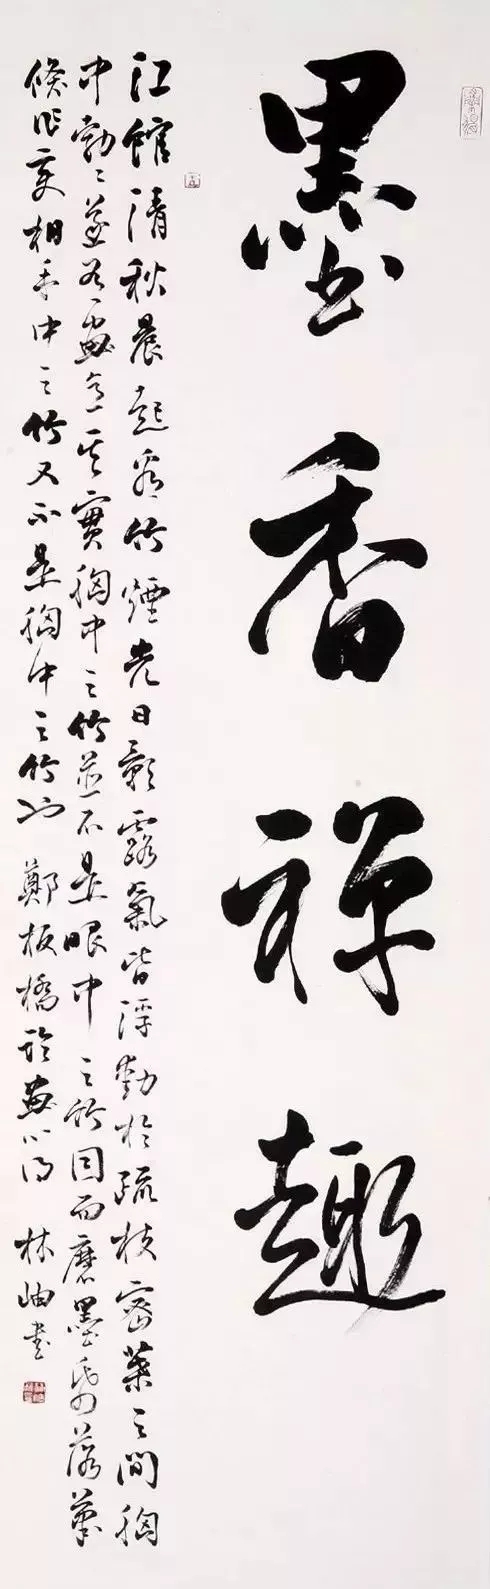 墨香禪趣
江館清秋晨起看竹煙光日影露氣皆浮動於疏枝密葉之間胸
中勃勃遂有畫意其實胸中之竹並不是眼中之竹因而磨墨展紙落筆
倏作變相手中之竹又不是胸中之竹也 鄭板橋論畫心得 林岫書